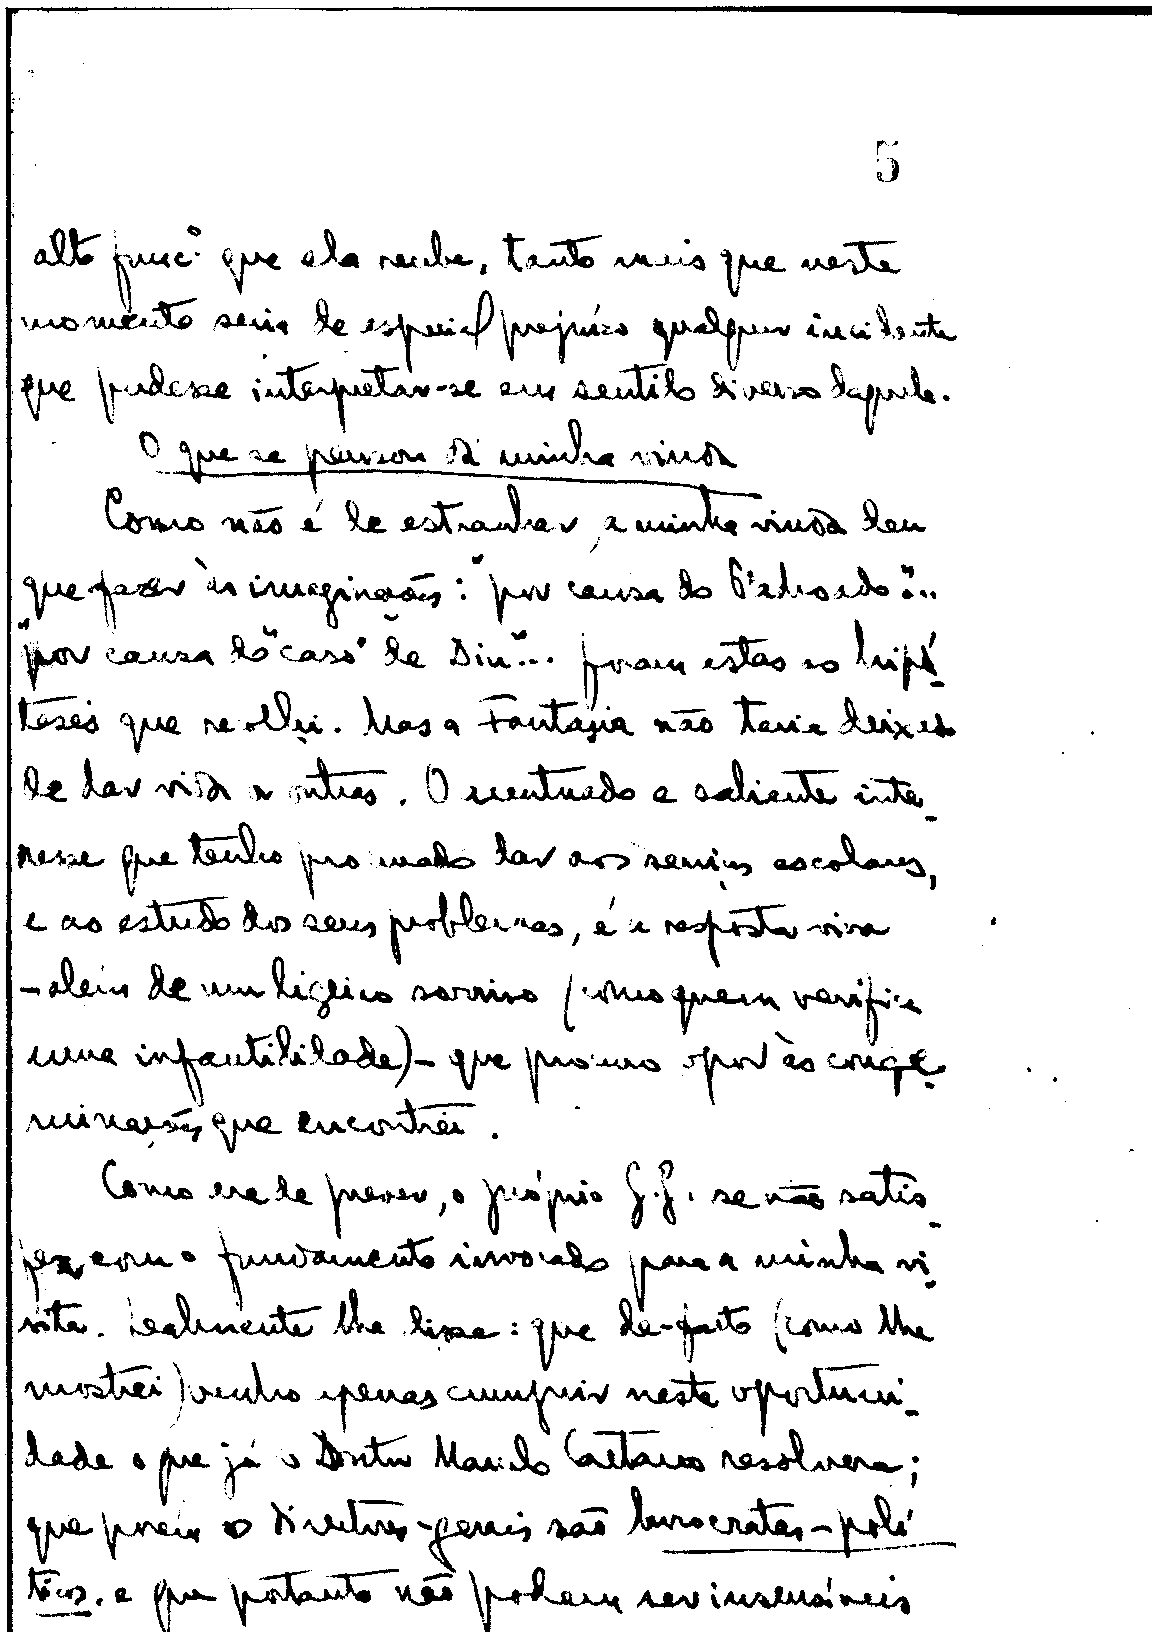 5
alto func.º que ela recebe, tanto mais que neste
momento seria de especial prejuízo qualquer incidente
que pudesse interpretar-se em sentido diverso daquele.
O que se pensou da minha vinda
Como não é de estranhar, a minha vinda deu
que fazer às imaginações: "por causa do Padroado"...
"por causa do "caso" de Diu"... foram estas as hipó-
teses que recolhi. Mas a Fantasia não teria deixado
de dar vida a outras. O acentuado e saliente inte-
resse que tenho procurado dar aos serviços escolares,
e ao estudo dos seus problemas, é a resposta viva
- além de um ligeiro sorriso (como quem verifica
uma infantilidade) - que procuro opor às conge-
minações que encontrei.
Como era de prever, o próprio G.G. se não satis-
fez com o fundamento invocado para a minha vi-
sita. Lealmente lhe disse: que de-facto (como lhe
mostrei) venho apenas cumprir nesta oportuni-
dade o que já o Doutor Marcelo Caetano resolvera;
que porém os Directores-gerais são burocratas-polí-
ticos, e que portanto não podem ser insensíveis